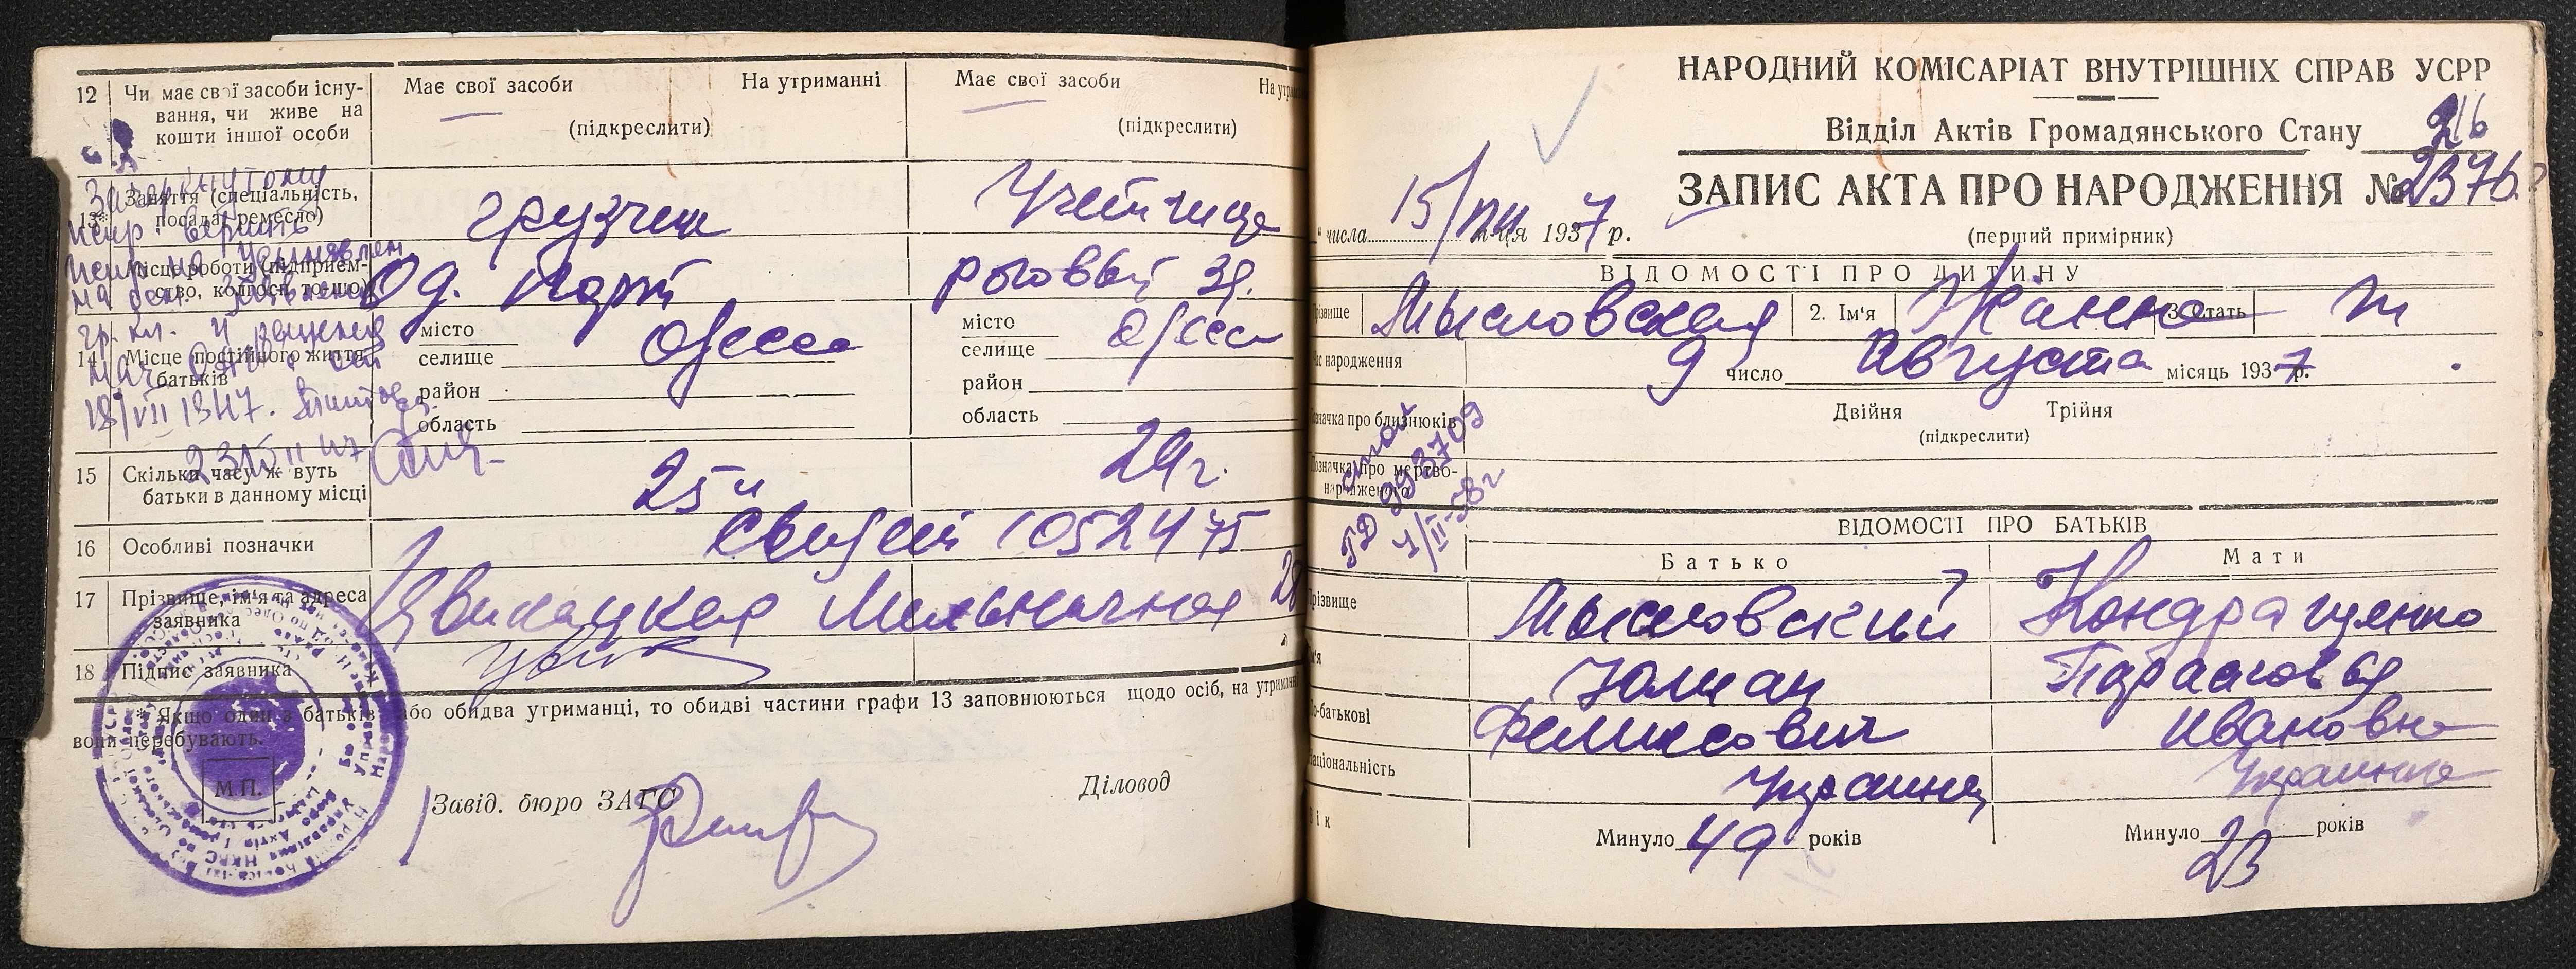 12 Чи має свої засоби існу-
вання, чи живе на
кошти іншої особи
Має свої засоби На утриманні
(підкреслити)
Має свої засоби
(підкреслити)
13* Заняття (спеціальність,
посада, ремесло)
грузчик
Місце роботи (підприєм-
ство, колгосп, тощо)
Од. Порт
14 Місце постійного життя
батьків
місто Одесса
селище
район
область
місто Одесса
селище
район
область
18/VII 1947.
15 Скільки часу живуть
батьки в данному місці
25
24 г.
16 Особливі позначки
1052475
17 Прізвище, ім'я та адреса
заявника
Мельничная 28
18 Підпис заявника
* Якщо один з батьків або обидва утриманці, то обидві частини графи 13 заповнюються щодо осіб, на утриманні
вони перебувають.
М.П.
Завід. бюро ЗАГС
Діловод
НАРОДНИЙ КОМІСАРІАТ ВНУТРІШНІХ СПРАВ УСРР
Відділ Актів Громадянського Стану
216
ЗАПИС АКТА ПРО НАРОДЖЕННЯ № 2376
числа 15/VIII м-ця 1937 р.
(перший примірник)
ВІДОМОСТІ ПРО ДИТИНУ
Прізвище Мысловская 2. Ім'я Жанна 3. Стать ж
Час народження 9 число Августа місяць 1937 р.
Позначка про близнюків
Двійня Трійня
(підкреслити)
Позначка про мертво-
народженого
993709
ВІДОМОСТІ ПРО БАТЬКІВ
Батько Мати
Прізвище Мысловский Кондращенко
Ім'я Юлиан Парасковья
По-батькові Феликсович Ивановна
Національність Украинец Украинка
Вік Минуло 49 років Минуло 23 років